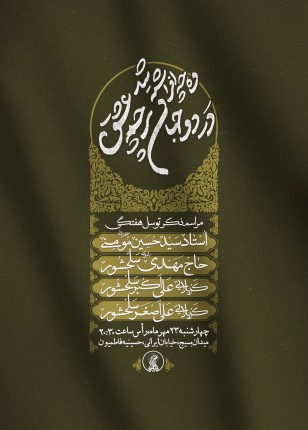 وه چه افراشته شد
در دو جهان پرچم عشق
مراسم ذکر توسل هفتگی
استاد سید حسین مومنی
حاج مهدی سلحشور
کربلایی علی اکبر سلحشور
کربلایی علی اصغر سلحشور
چهارشنبه ۲۳ مهرماه رأس ساعت ۲۰:۳۰
میدان بسیج، خیابان ایرانی، حسینیه فاطمیون